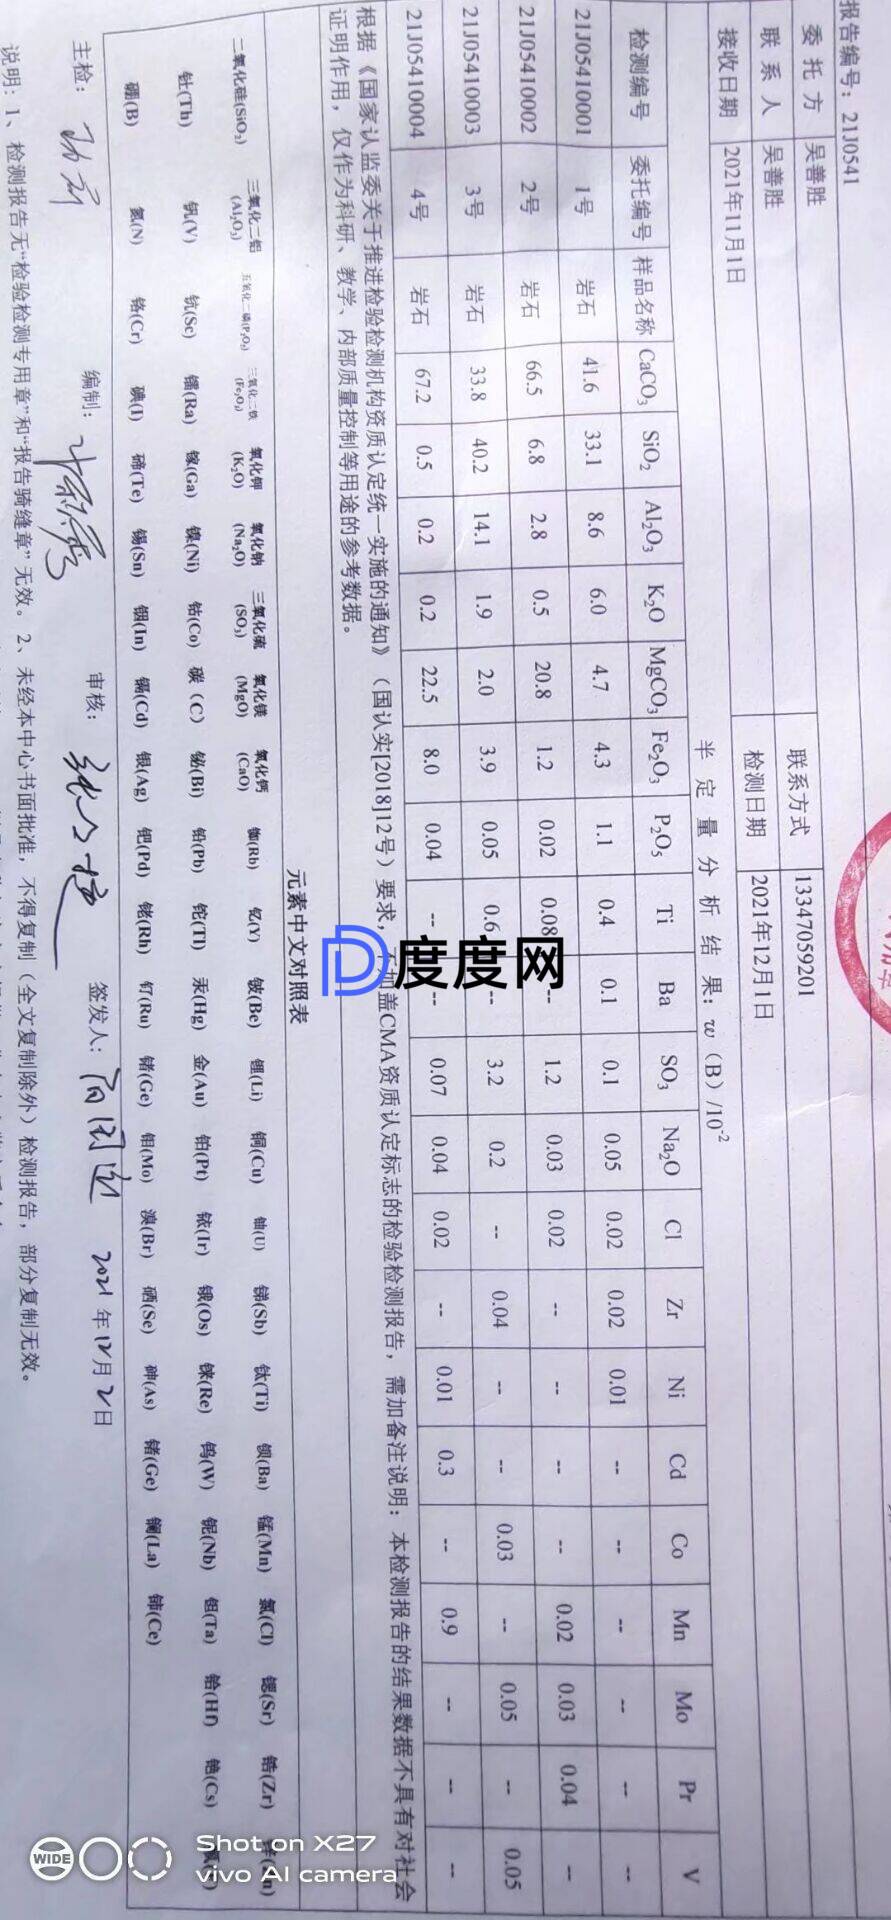 报告编号：21J0541
委托方 吴善胜 联系方式 13347059201
联系人 吴善胜 检测日期 2021年12月1日
接收日期 2021年11月1日
半定量分析结果：w（B）/10⁻²
检测编号 委托编号 样品名称 CaCO₃ SiO₂ Al₂O₃ K₂O MgCO₃ Fe₂O₃ P₂O₅ Ti Ba SO₃ Na₂O Cl Zr Ni Cd Co Mn Mo Pr V
21J05410001 1号 岩石 41.6 33.1 8.6 6.0 4.7 4.3 1.1 0.4 0.1 0.1 0.05 0.02 0.02 0.01 -- -- -- -- -- --
21J05410002 2号 岩石 66.5 6.8 2.8 0.5 20.8 1.2 0.02 0.08 -- 1.2 0.03 0.02 -- -- -- -- 0.02 0.03 0.04 --
21J05410003 3号 岩石 33.8 40.2 14.1 1.9 2.0 3.9 0.05 0.6 -- 3.2 0.2 -- 0.04 -- -- 0.03 -- 0.05 -- 0.05
21J05410004 4号 岩石 67.2 0.5 0.2 0.2 22.5 8.0 0.04 -- -- 0.07 0.04 0.02 -- 0.01 0.3 -- 0.9 -- -- --
根据《国家认监委关于推进检验检测机构资质认定统一实施的通知》（国认实[2018]12号）要求，不加盖CMA资质认定标志的检验检测报告，需加备注说明：本检测报告的结果数据不具有对社会
证明作用，仅作为科研、教学、内部质量控制等用途的参考数据。
元素中文对照表
二氧化硅(SiO₂) 三氧化二铝(Al₂O₃) 五氧化二磷(P₂O₅) 三氧化二铁(Fe₂O₃) 氧化钾(K₂O) 氧化钠(Na₂O) 三氧化硫(SO₃) 氧化镁(MgO) 氧化钙(CaO) 铷(Rb) 钇(Y) 铍(Be) 锂(Li) 铜(Cu) 铀(U) 锑(Sb) 钛(Ti) 钡(Ba) 锰(Mn) 氯(Cl) 锶(Sr) 锆(Zr)
钍(Th) 钒(V) 钪(Sc) 镭(Ra) 镓(Ga) 镍(Ni) 钴(Co) 碳（C） 铋(Bi) 铅(Pb) 铊(Tl) 汞(Hg) 金(Au) 铂(Pt) 铱(Ir) 锇(Os) 铼(Re) 钨(W) 铌(Nb) 钽(Ta) 铪(Hf) 铯(Cs)
硼(B) 氮(N) 铬(Cr) 碘(I) 碲(Te) 锡(Sn) 铟(In) 镉(Cd) 银(Ag) 钯(Pd) 铑(Rh) 钌(Ru) 锗(Ge) 钼(Mo) 溴(Br) 硒(Se) 砷(As) 锗(Ge) 镧(La) 铈(Ce)
主检： 编制： 审核： 签发人： 2021年12月2日
说明：1、检测报告无“检验检测专用章”和“报告骑缝章”无效。2、未经本中心书面批准，不得复制（全文复制除外）检测报告，部分复制无效。
度度网
WIDE
Shot on X27
vivo AI camera